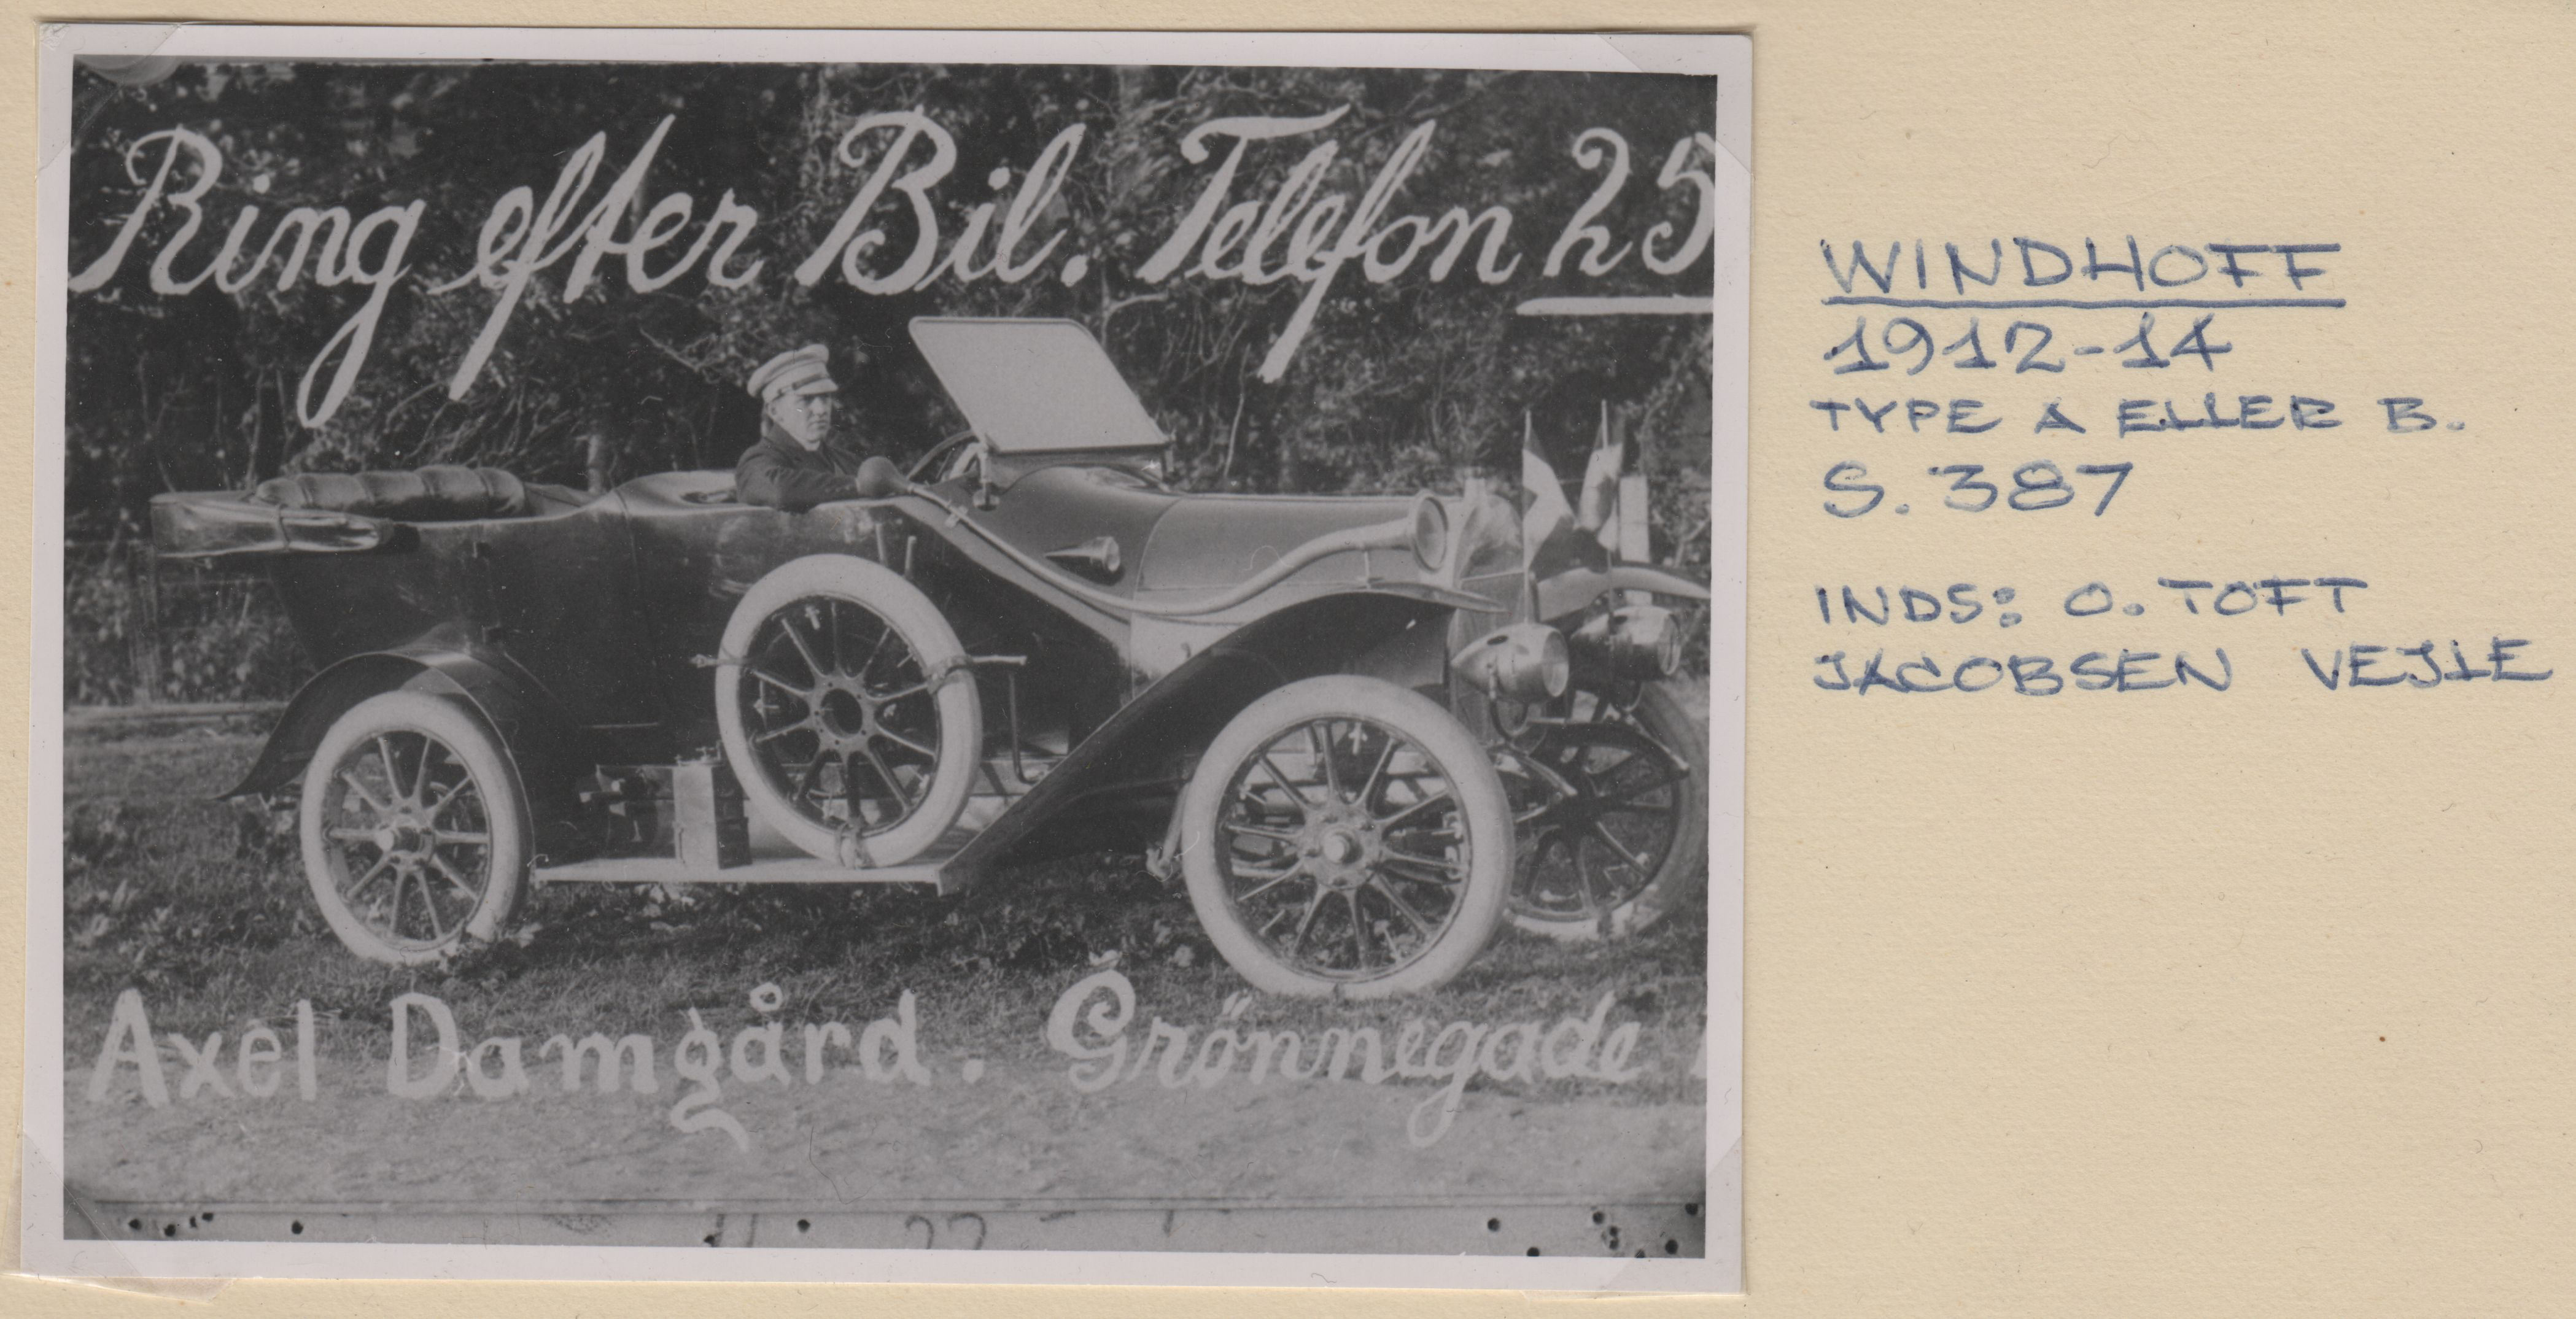 Ring efter Bil. Telefon 25
Axel Damgård. Grönnegade
WINDHOFF
1912-14
TYPE A ELLER B.
S. 387
INDS: O. TOFT
JACOBSEN VEJLE